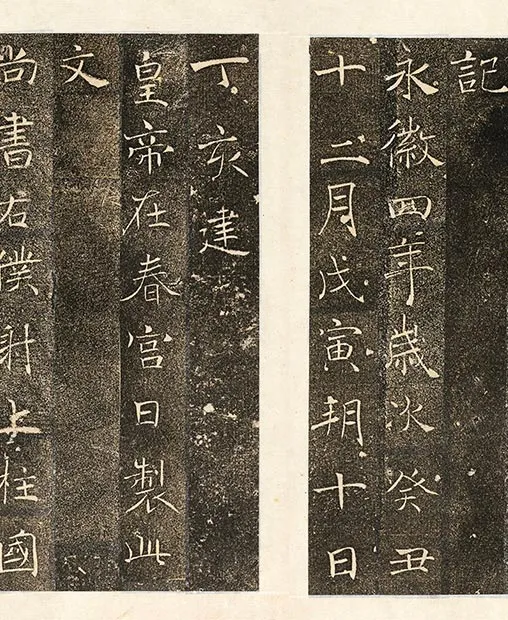 記
永徽四年歲次癸丑
十二月戊寅朔十日
丁亥建
皇帝在春宮日製此
文
尚書右僕射上柱國